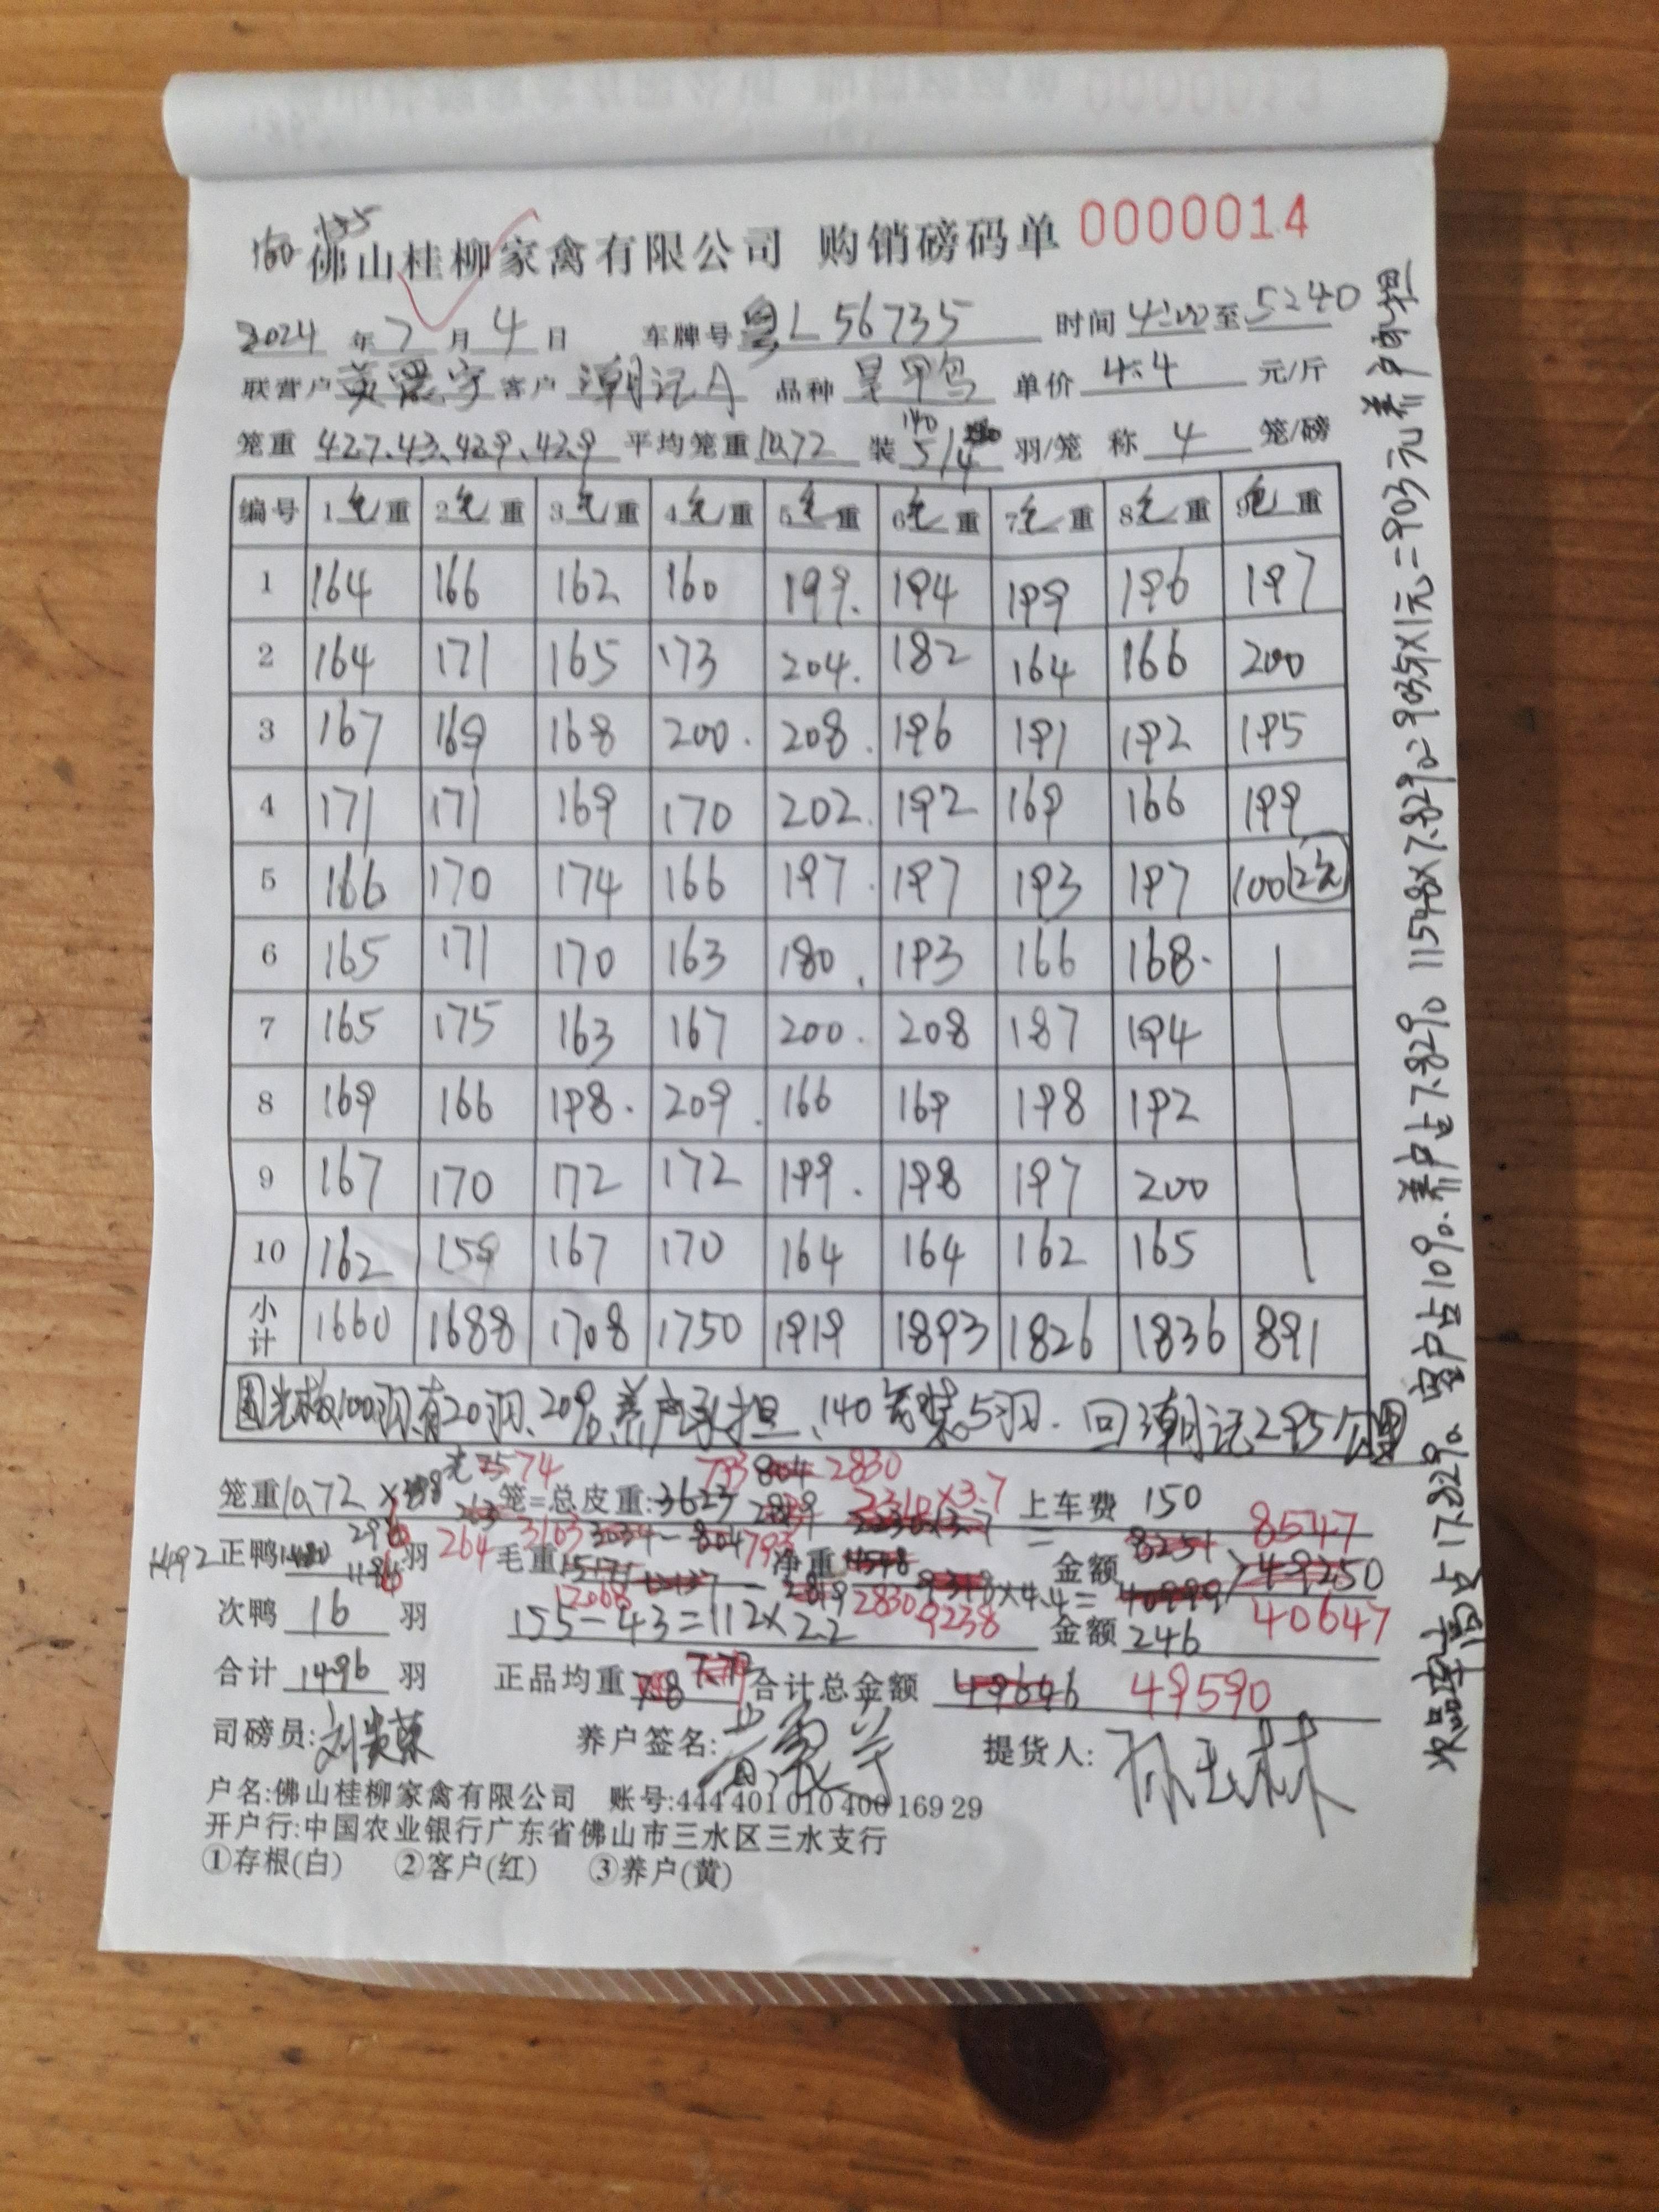 160 155
佛山桂柳家禽有限公司 购销磅码单 0000014
2024 年 7 月 4 日 车牌号 粤L56735 时间 4:00 至 5:40
联营户 客户 潮记A 品种 单价 4.4 元/斤
笼重 42.7、43、42.9、42.9 平均笼重 10.72 装 5/4 羽/笼 称 4 笼/磅
编号 1毛重 2毛重 3毛重 4毛重 5毛重 6毛重 7毛重 8毛重 9毛重
1 164 166 162 160 199. 194 199 196 197
2 164 171 165 173 204. 182 164 166 200
3 167 169 168 200. 208. 196 191 192 195
4 171 171 169 170 202. 192 169 166 199
5 166 170 174 166 197. 197 193 197 100 2笼
6 165 171 170 163 180. 193 166 168.
7 165 175 163 167 200. 208 187 194
8 169 166 198. 209. 166 169 198 192
9 167 170 172 172 199. 198 197 200
10 162 159 167 170 164 164 162 165
小计 1660 1688 1708 1750 1919 1893 1826 1836 891
100羽有20羽、20% 养户承担、140笼装5羽. 回潮记295公里
74 793 2830
笼重 10.72 × 笼=总皮重: 3623 上车费 150
264 3103 793 2310×3.7 = 8547
1492 正鸭 羽 毛重 净重 金额
12068 2830 9238 ×4.4= 40647
次鸭 16 羽 155-43=112×2.2 金额 246
合计 1496 羽 正品均重 合计总金额 49590
司磅员: 养户签名: 提货人:
户名:佛山桂柳家禽有限公司 账号:444 401 010 400 169 29
开户行:中国农业银行广东省佛山市三水区三水支行
①存根(白) ②客户(红) ③养户(黄)
次品率占17.82%。客户占10%.养户占7.82% 11548×7.82%=903斤×1元=903元